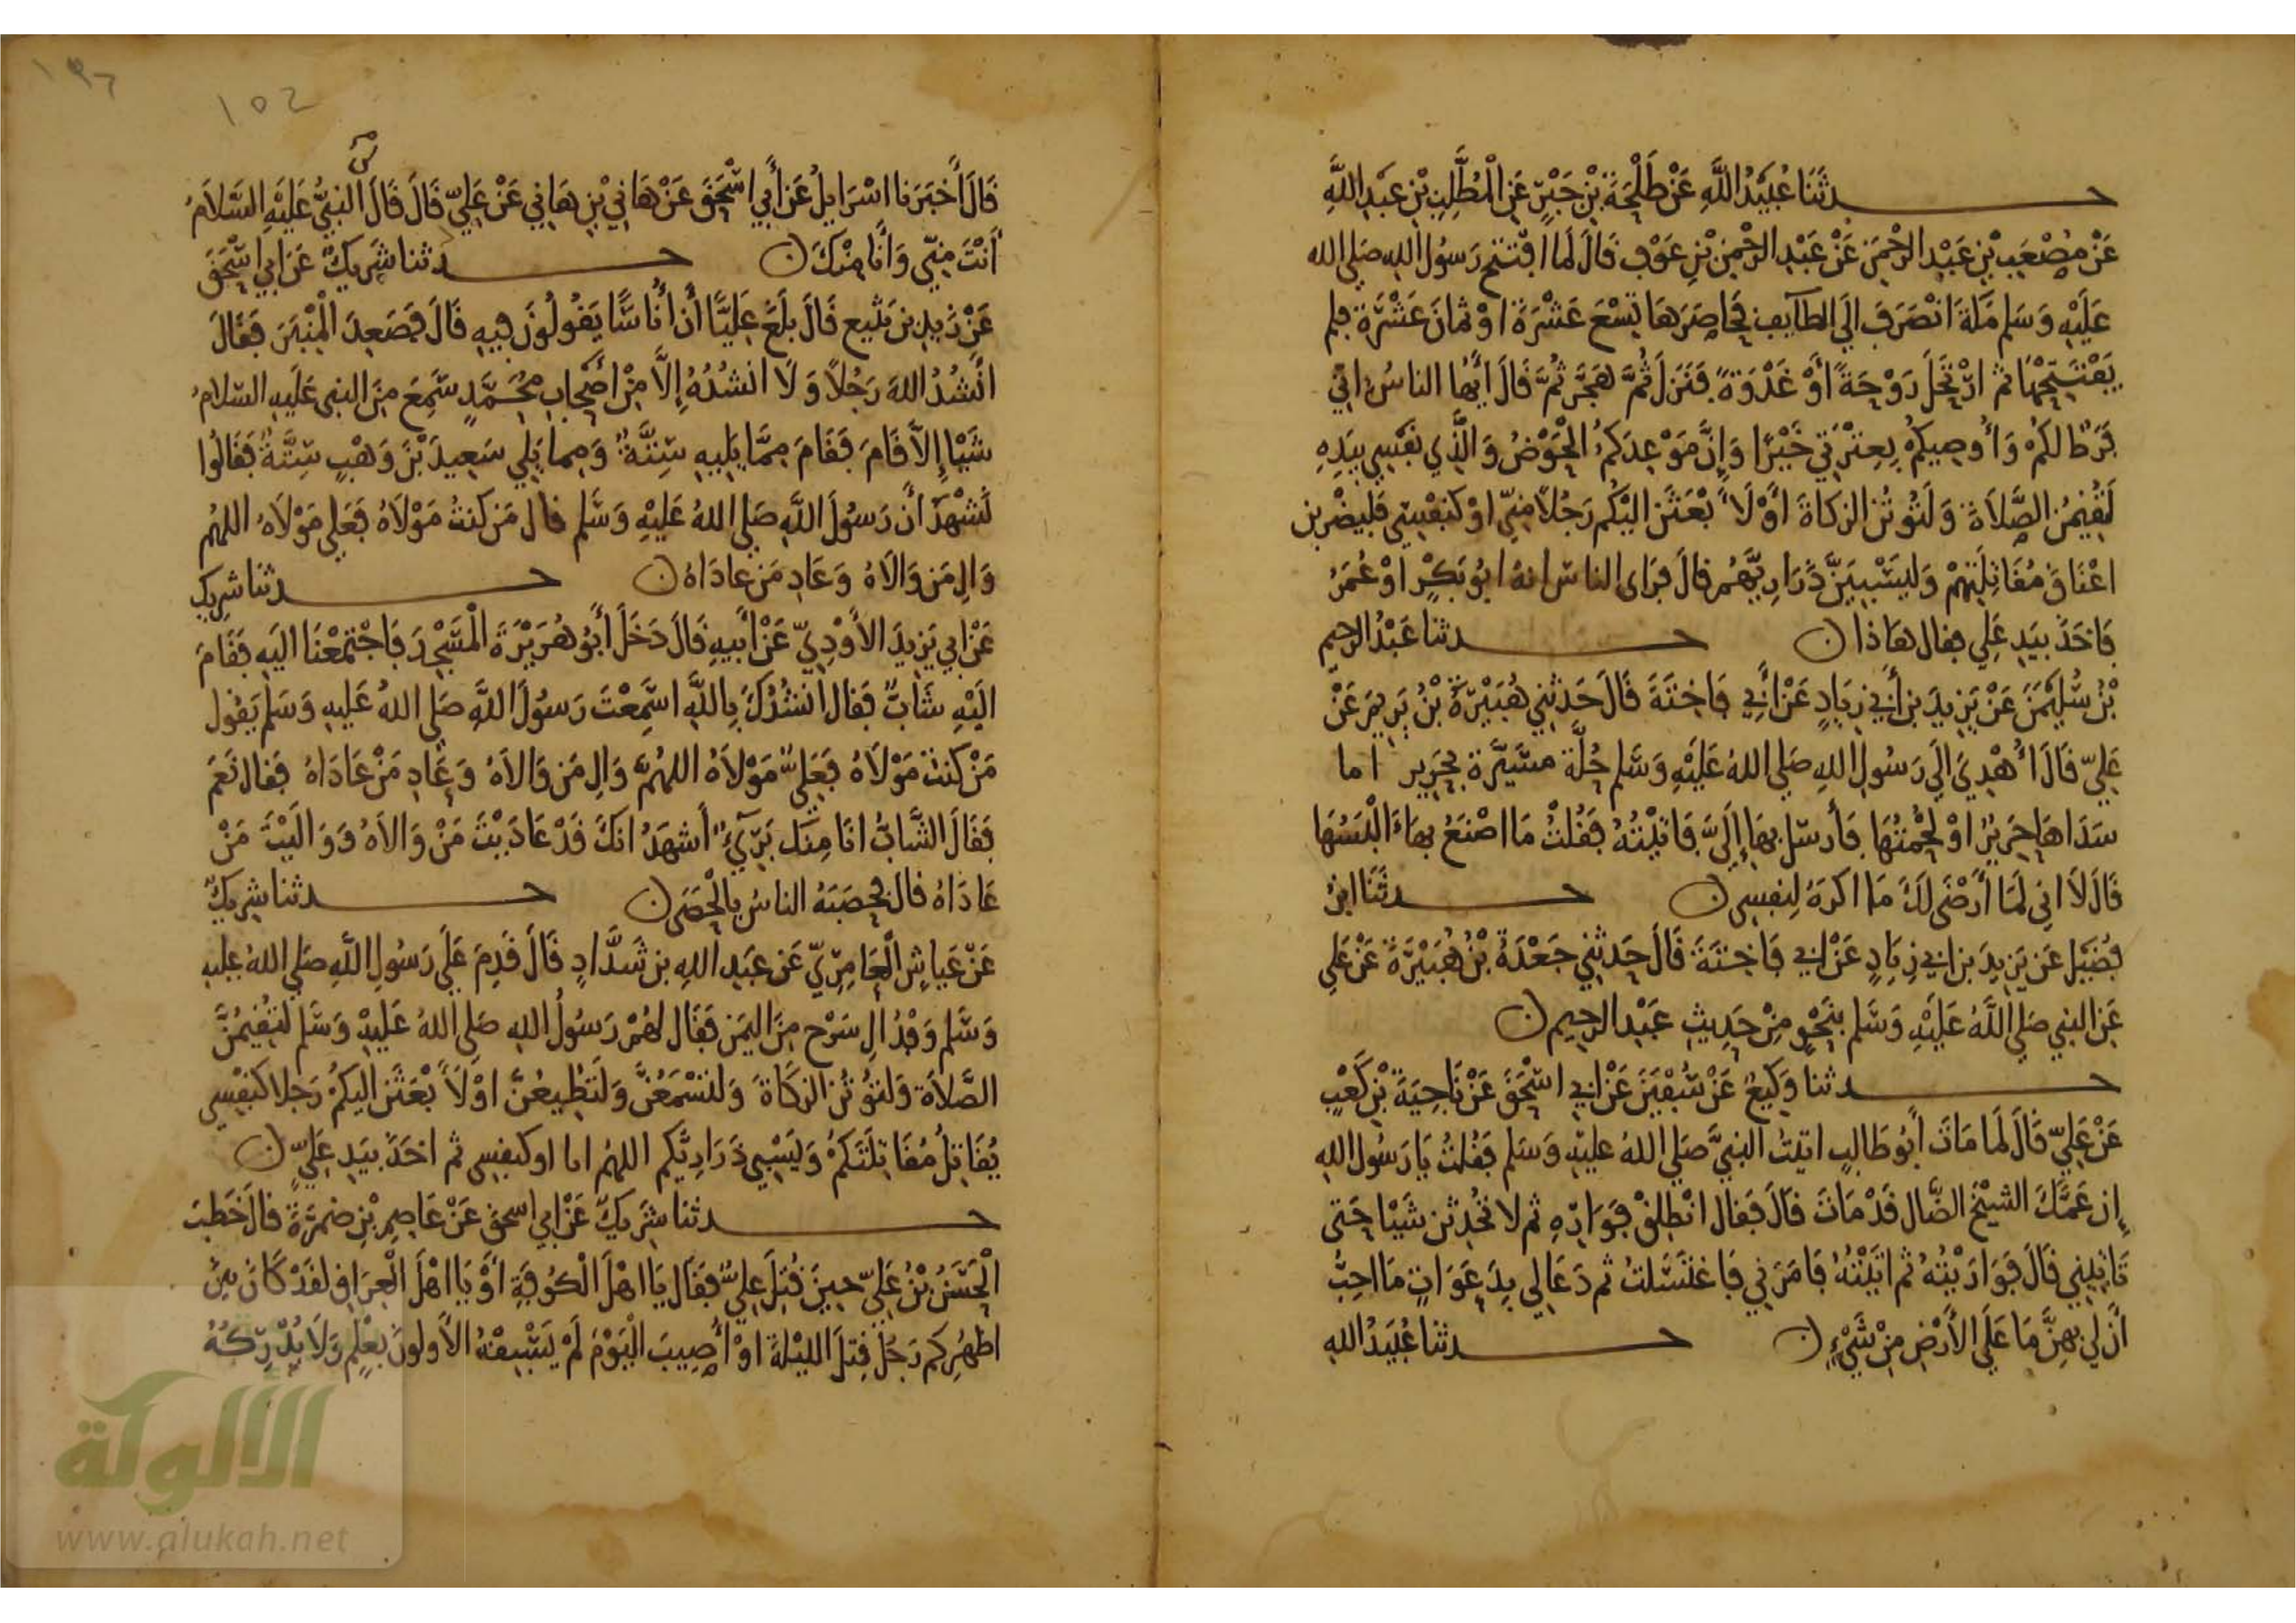 حدثنا عبيد الله عن طلحة بن جبر عن المطلب بن عبد الله
عن مصعب بن عبد الرحمن عن عبد الرحمن بن عوف قال لما افتتح رسول الله صلى الله
عليه وسلم مكة انصرف الى الطايف فحاصرها تسع عشرة او ثمان عشرة فلم
يفتتحها ثم ارتحل روحة او غدوة فنزل ثم هجر ثم قال ايها الناس اني
فرط لكم واوصيكم بعترتي خيرا وان موعدكم الحوض والذي نفسي بيده
لتقيمن الصلاة ولتوتن الزكاة او لا بعثن اليكم رجلا مني او كنفسي فليضربن
اعناق مقاتلتهم وليسبين ذراريهم قال فراى الناس انه ابو بكر او عمر
فاخذ بيد علي فقال هاذا ن حدثنا عبد الرحيم
بن سليمن عن يزيد بن أبي زياد عن أبي فاختة قال حدثني هبيرة بن يريم عن
علي قال أهدي إلى رسول الله صلى الله عليه وسلم حلة مسيرة بحرير اما
سداها حرير او لحمتها فأرسل بها إلي فاتيته فقلت ما اصنع بها ء البسها
قال لا اني لما أرضى لك ما اكره لنفسي ن حدثنا ابن
فضيل عن يزيد بن ابي زياد عن ابي فاختة قال حدثني جعدة بن هبيرة عن علي
عن النبي صلى الله عليه وسلم بنحو من حديث عبد الرحيم ن
حدثنا وكيع عن سفين عن ابي اسحق عن ناجية بن كعب
عن علي قال لما مات أبو طالب اتيت النبي صلى الله عليه وسلم فقلت يا رسول الله
إن عمك الشيخ الضال قد مات قال فقال انطلق فواره ثم لا تحدثن شيا حتى
تاتيني قال فواريته ثم اتيته فامرني فاغتسلت ثم دعا لي بدعوات ما احب
أن لي بهن ما على الأرض من شيء ن حدثنا عبيد الله
١٩٦
١٥٢
قال أخبرنا اسرايل عن أبي اسحق عن هاني بن هاني عن علي قال قال النبي عليه السلام
أنت مني وأنا منك ن حدثنا شريك عن ابي اسحق
عن زيد بن يثيع قال بلغ عليا أن أناسا يقولون فيه قال فصعد المنبر فقال
انشد الله رجلا ولا انشده إلا من أصحاب محمد سمع من النبي عليه السلام
شيا إلا قام فقام مما يليه ستة ومما يلي سعيد بن وهب ستة فقالوا
نشهد أن رسول الله صلى الله عليه وسلم قال من كنت مولاه فعلي مولاه اللهم
وال من والاه وعاد من عاداه ن حدثنا شريك
عن ابي يزيد الاودي عن أبيه قال دخل أبو هريرة المسجد فاجتمعنا اليه فقام
اليه شاب فقال انشدك بالله اسمعت رسول الله صلى الله عليه وسلم يقول
من كنت مولاه فعلي مولاه اللهم وال من والاه وعاد من عاداه فقال نعم
فقال الشاب انا منك بريء أشهد انك قد عاديت من والاه وواليت من
عاداه قال فحصبه الناس بالحصى ن حدثنا شريك
عن عياش العامري عن عبد الله بن شداد قال قدم على رسول الله صلى الله عليه
وسلم وفد ال سرح من اليمن فقال لهم رسول الله صلى الله عليه وسلم لتقيمن
الصلاة ولتوتن الزكاة ولتسمعن ولتطيعن او لأبعثن اليكم رجلا كنفسي
يقاتل مقاتلتكم وليسبي ذراريكم اللهم اما او كنفسي ثم اخذ بيد علي ن
حدثنا شريك عن ابي اسحق عن عاصم بن ضمرة قال خطب
الحسن بن علي حين قتل علي فقال يا اهل الكوفة أو يا اهل العراق لقد كان بين
اظهركم رجل قتل الليلة او أصيب اليوم لم يسبقه الأولون بعلم ولا يدركه
الألوكة
www.alukah.net